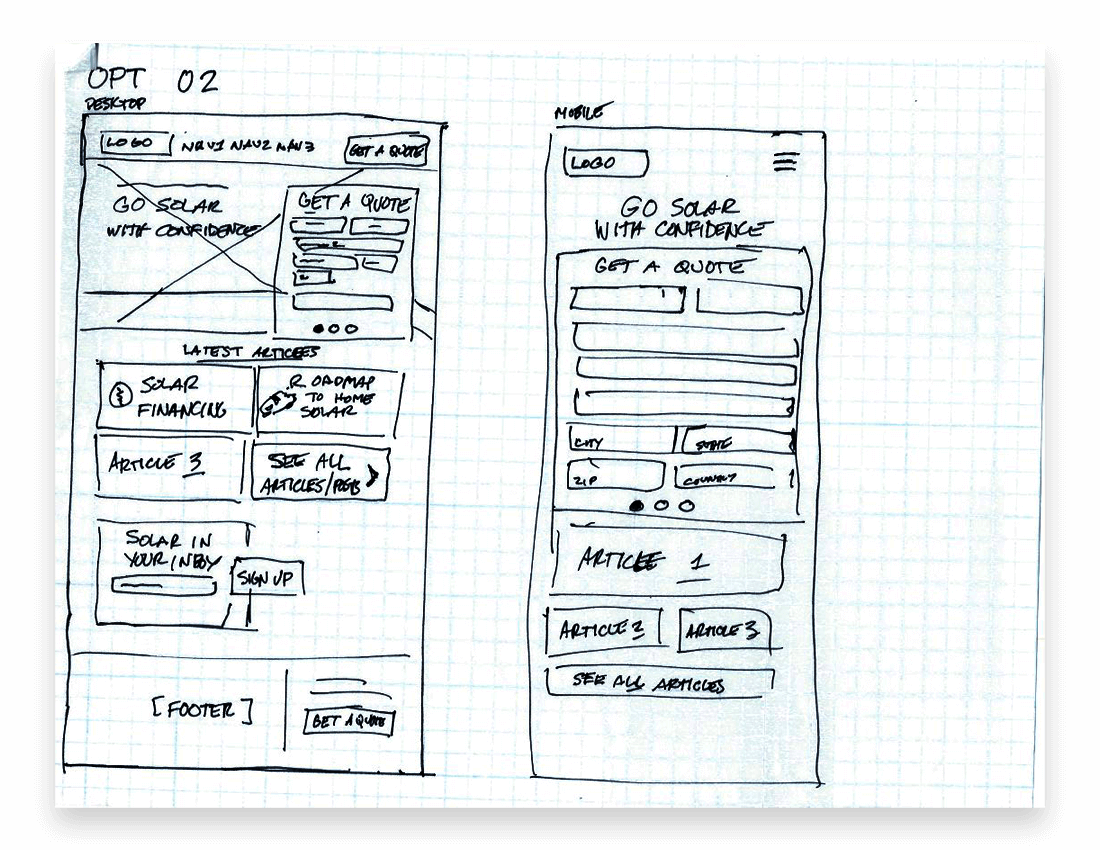 OPT 02
DESKTOP
LOGO NAV1 NAV2 NAV3 GET A QUOTE
GO SOLAR
WITH CONFIDENCE
GET A QUOTE
LATEST ARTICLES
SOLAR
FINANCING
ROADMAP
TO HOME
SOLAR
ARTICLE 3
SEE ALL
ARTICLES/
SOLAR IN
YOUR INBOX
SIGN UP
[FOOTER]
GET A QUOTE
MOBILE
LOGO
GO SOLAR
WITH CONFIDENCE
GET A QUOTE
CITY STATE
ZIP COUNTRY
ARTICLE 1
ARTICLE 2 ARTICLE 3
SEE ALL ARTICLES